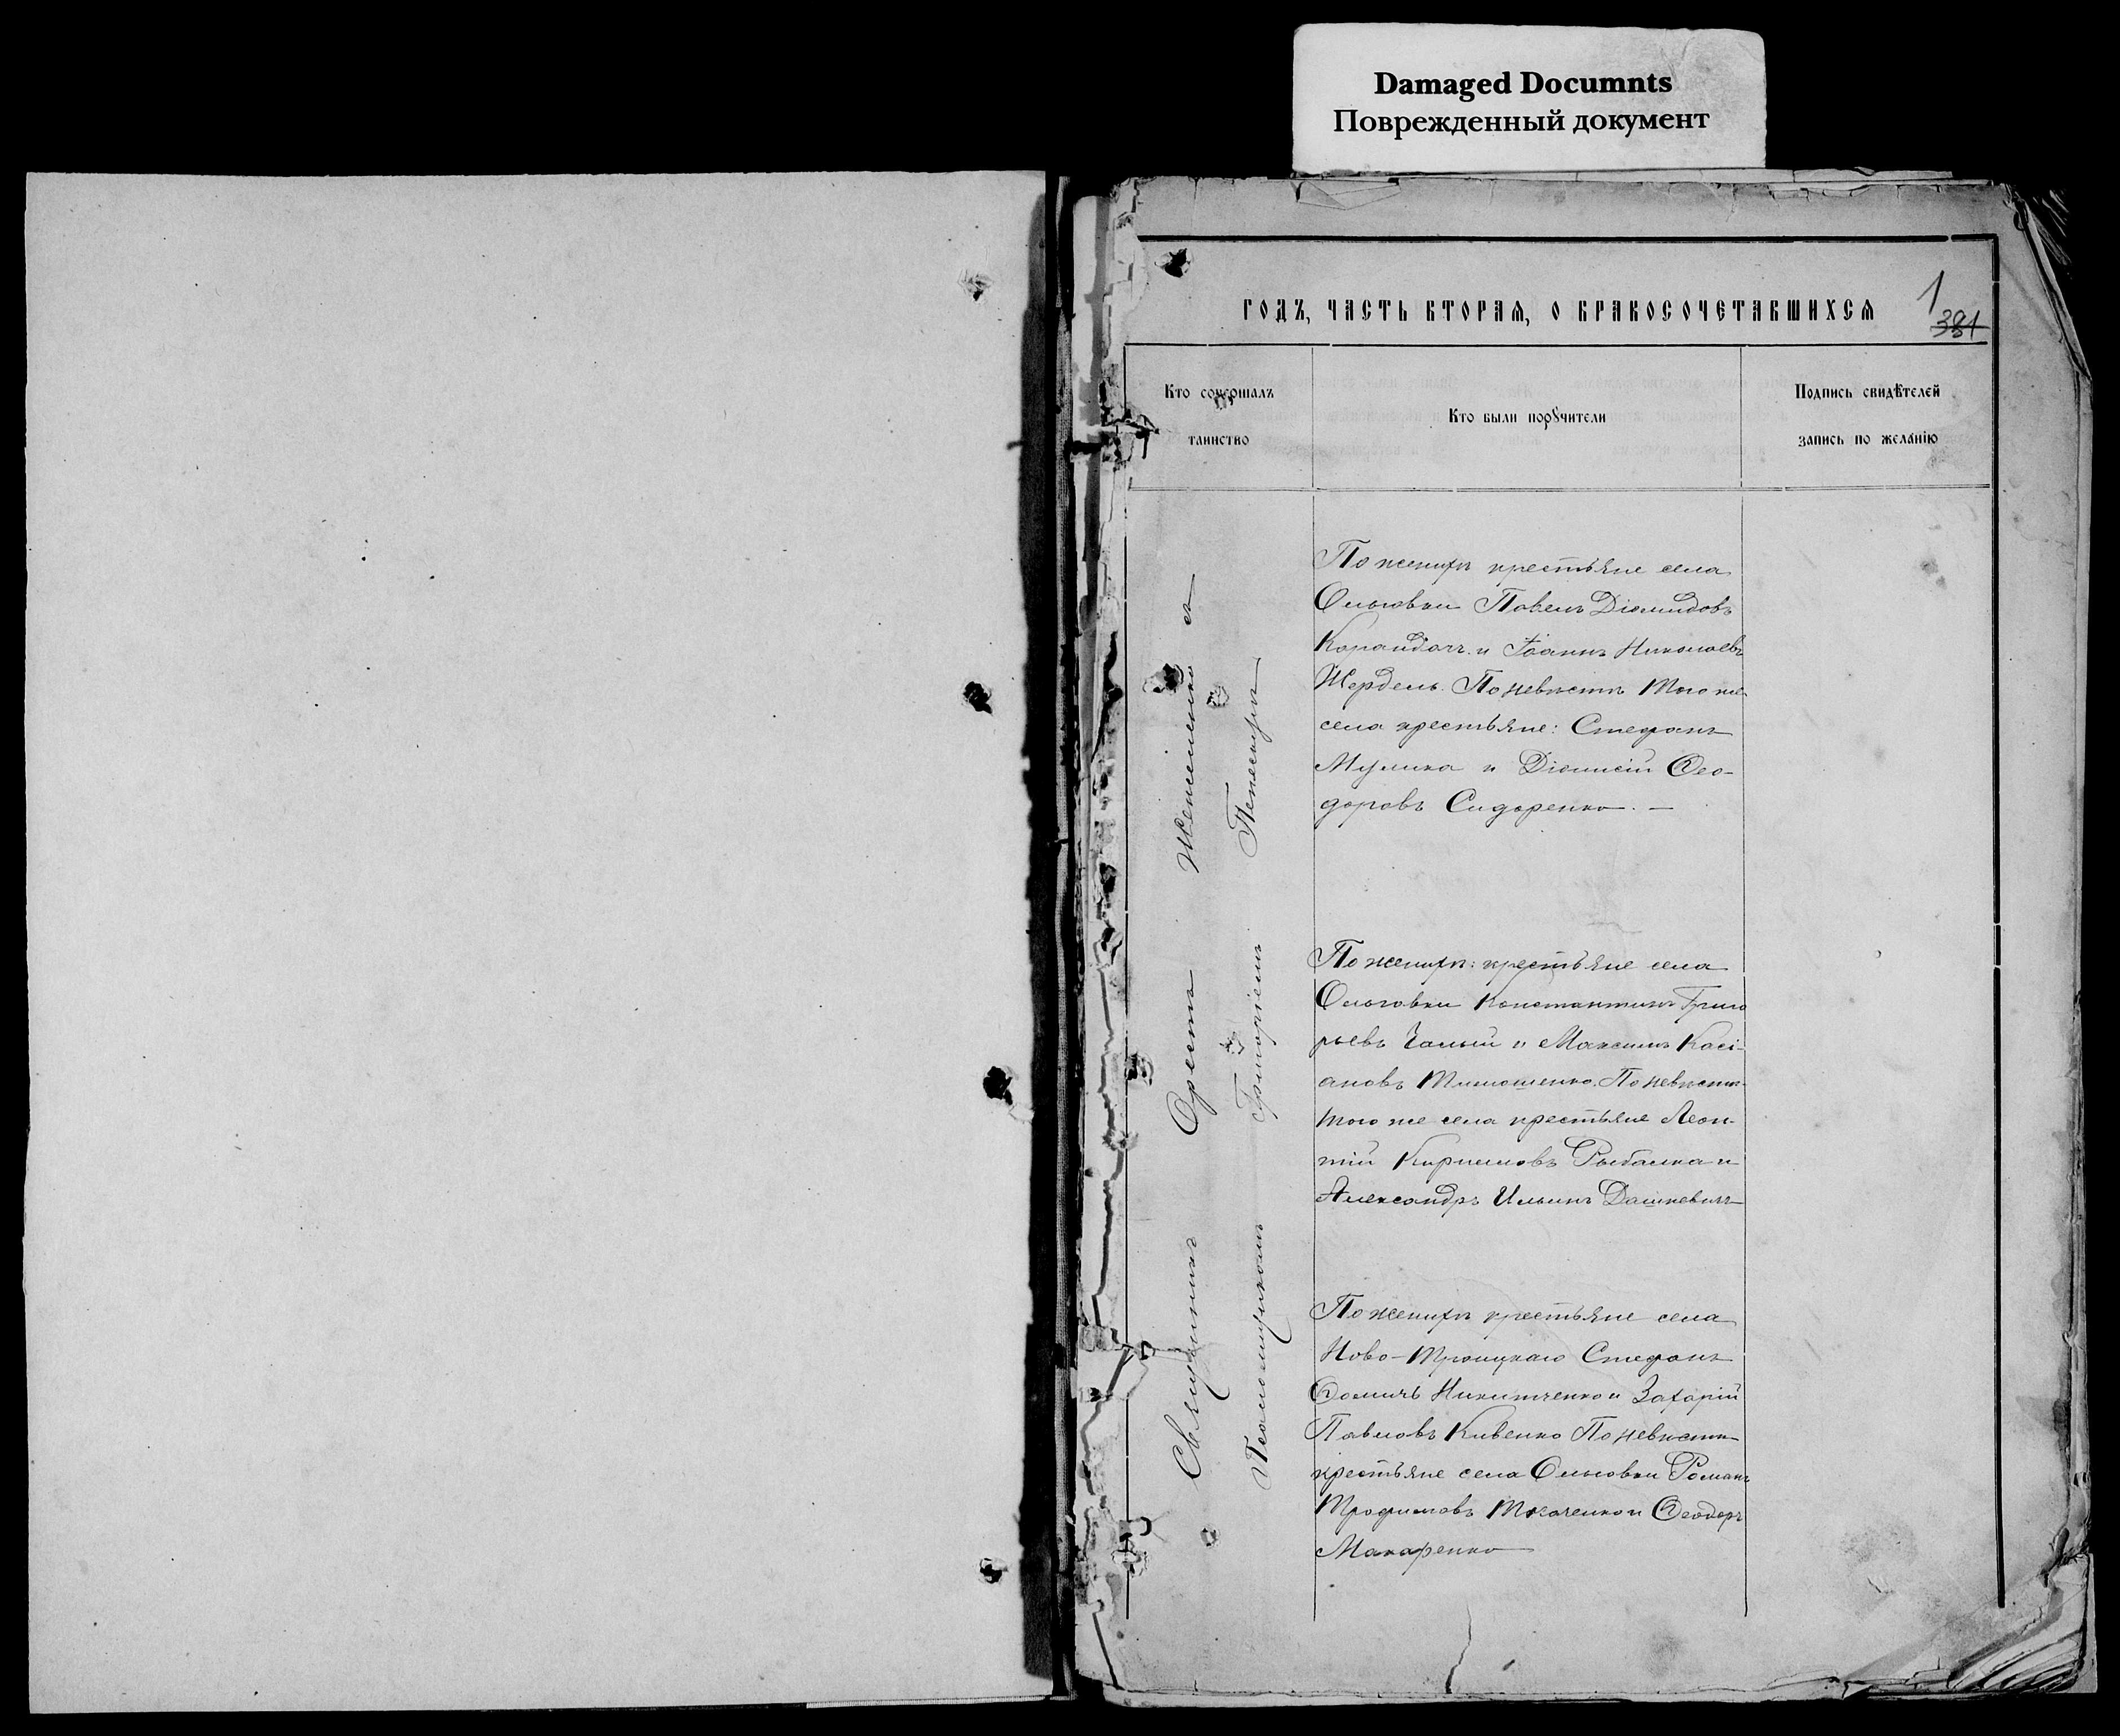 Damaged Documnts
Поврежденный документ
ГОДЪ, ЧАСТЬ ВТОРАЯ, О БРАКОСОЧЕТАВШИХСЯ
1
381
Кто совершалъ
таинство
Кто были порꙋчители
Подпись свидѣтелей
запись по желанію
Священникъ Орестъ
Псаломщикомъ Григоріемъ
По женихѣ крестьяне села
Ольговки Павелъ Діомидовъ
Карандачъ и Іоаннъ Николаевъ
Жердель. По невѣстѣ того же
села крестьяне: Стефанъ
Мулика и Діонисій Ѳео-
доровъ Сидоренко. —
По женихѣ: крестьяне села
Ольговки Константинъ Григо
рьевъ Чалый и Максимъ Касі-
ановъ Тимошенко. По невѣстѣ
того же села крестьяне Леон-
тій Кириловъ Рыбалка и
Александръ Ильинъ Дашкевичъ
По женихѣ крестьяне села
Ново-Троицкаго Стефанъ
Ѳомичъ Никитченко и Захарій
Павловъ Кивенко По невѣстѣ
крестьяне села Ольговки Романъ
Трофимовъ Ткаченко и Ѳеодоръ
Макаренко